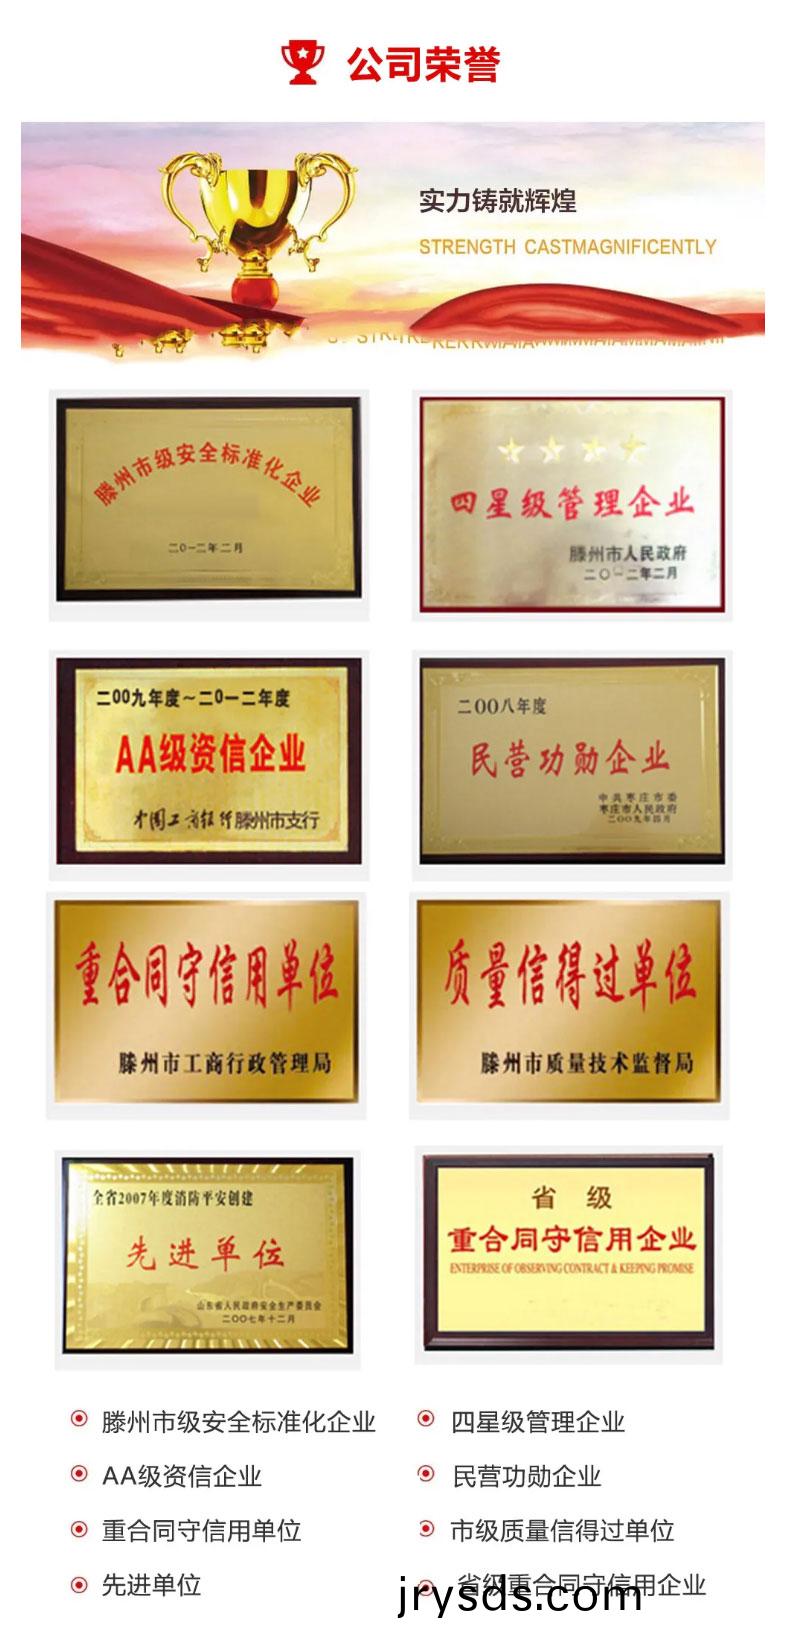 公司荣誉
实力铸就辉煌
STRENGTH CASTMAGNIFICENTLY
滕州市级安全标准化企业
二0一二年二月
四星级管理企业
滕州市人民政府
二〇一二年二月
二00九年度～二0一二年度
AA级资信企业
中国工商银行滕州市支行
二00八年度
民营功勋企业
中共枣庄市委
枣庄市人民政府
二〇〇九年四月
重合同守信用单位
滕州市工商行政管理局
质量信得过单位
滕州市质量技术监督局
全省2007年度消防平安创建
先进单位
山东省人民政府安全生产委员会
二〇〇七年十二月
省 级
重合同守信用企业
ENTERPRISE OF OBSERVING CONTRACT & KEEPING PROMISE
滕州市级安全标准化企业
四星级管理企业
AA级资信企业
民营功勋企业
重合同守信用单位
市级质量信得过单位
先进单位
省级重合同守信用企业
jrysds.com